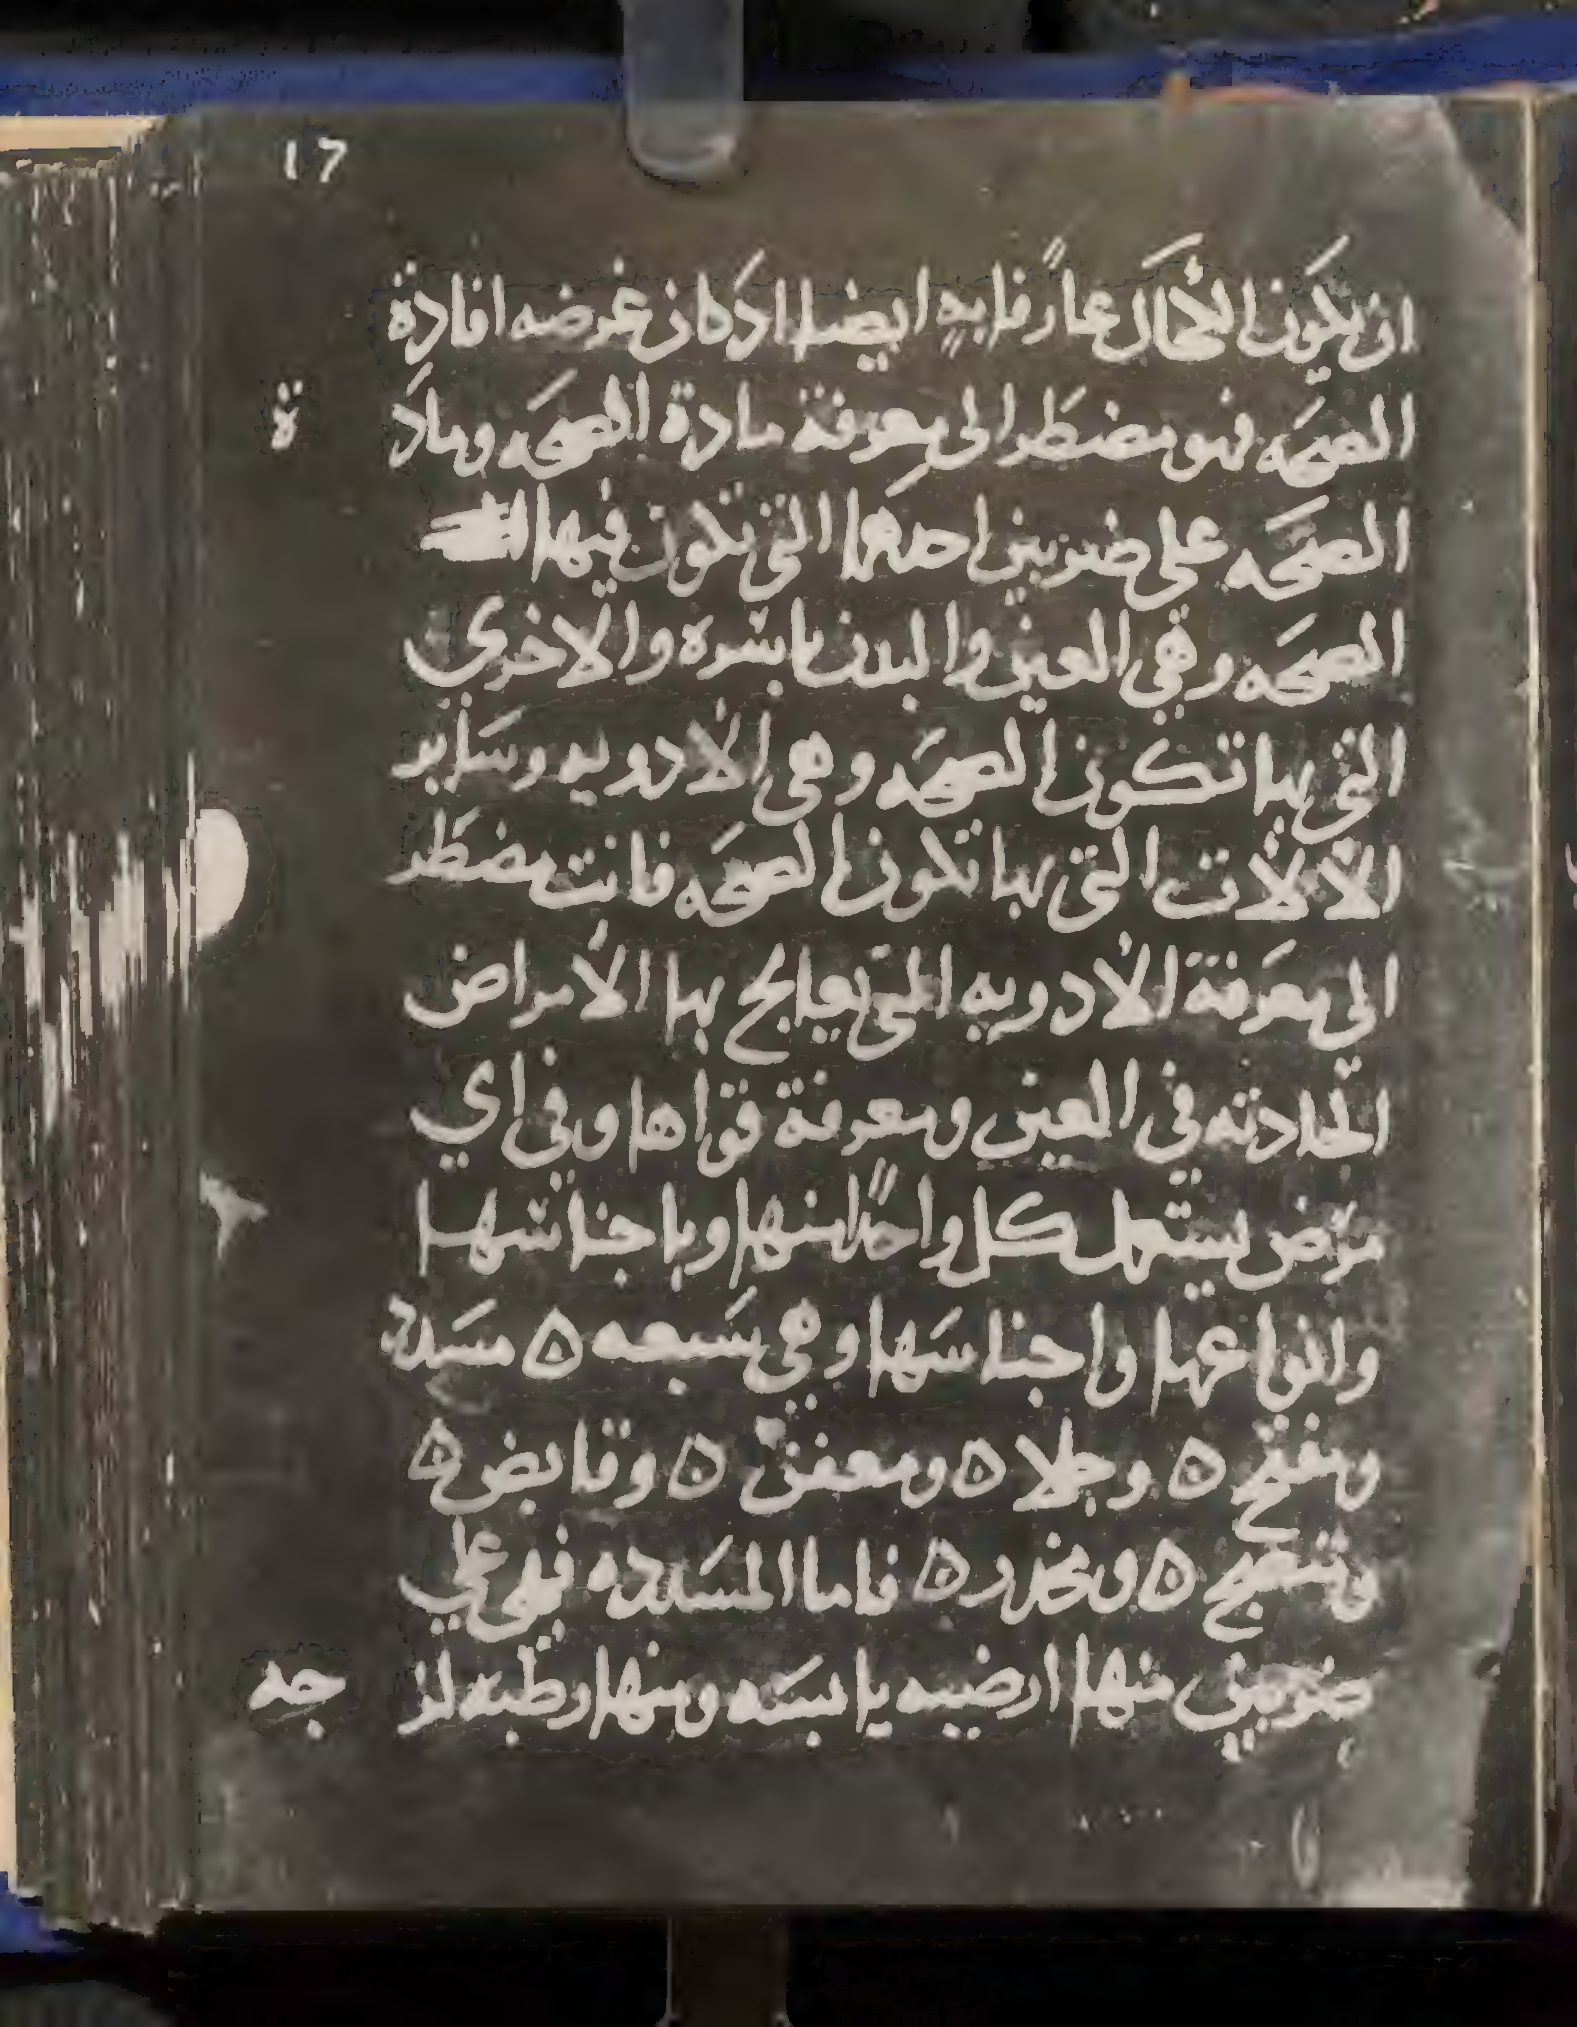 17
ان يكون الكحال عارفا به ايضا اذ كان غرضه افادة
الصحه فهو مضطر الى معرفة مادة الصحه وماد
ة
الصحه على ضربين احدهما التي تكون فيها
الصحه وهي العين والبدن باسره والاخرى
التي بها تكون الصحه وهي الادويه وساير
الالات التي بها تكون الصحه فانت مضطر
الى معرفة الادويه التي يعالج بها الامراض
الحادثه في العين ومعرفة قواها وفي اي
مرض يستعمل كل واحدا منها وباجناسها
وانواعها واجناسها وهي سبعه ه مسدد
ومفتح ه وجلا ه ومعفن ه وقابض ه
ومنضج ه ومخدر ه فاما المسدده فهي على
ضربين منها ارضيه يابسه ومنها رطبه لز
جه